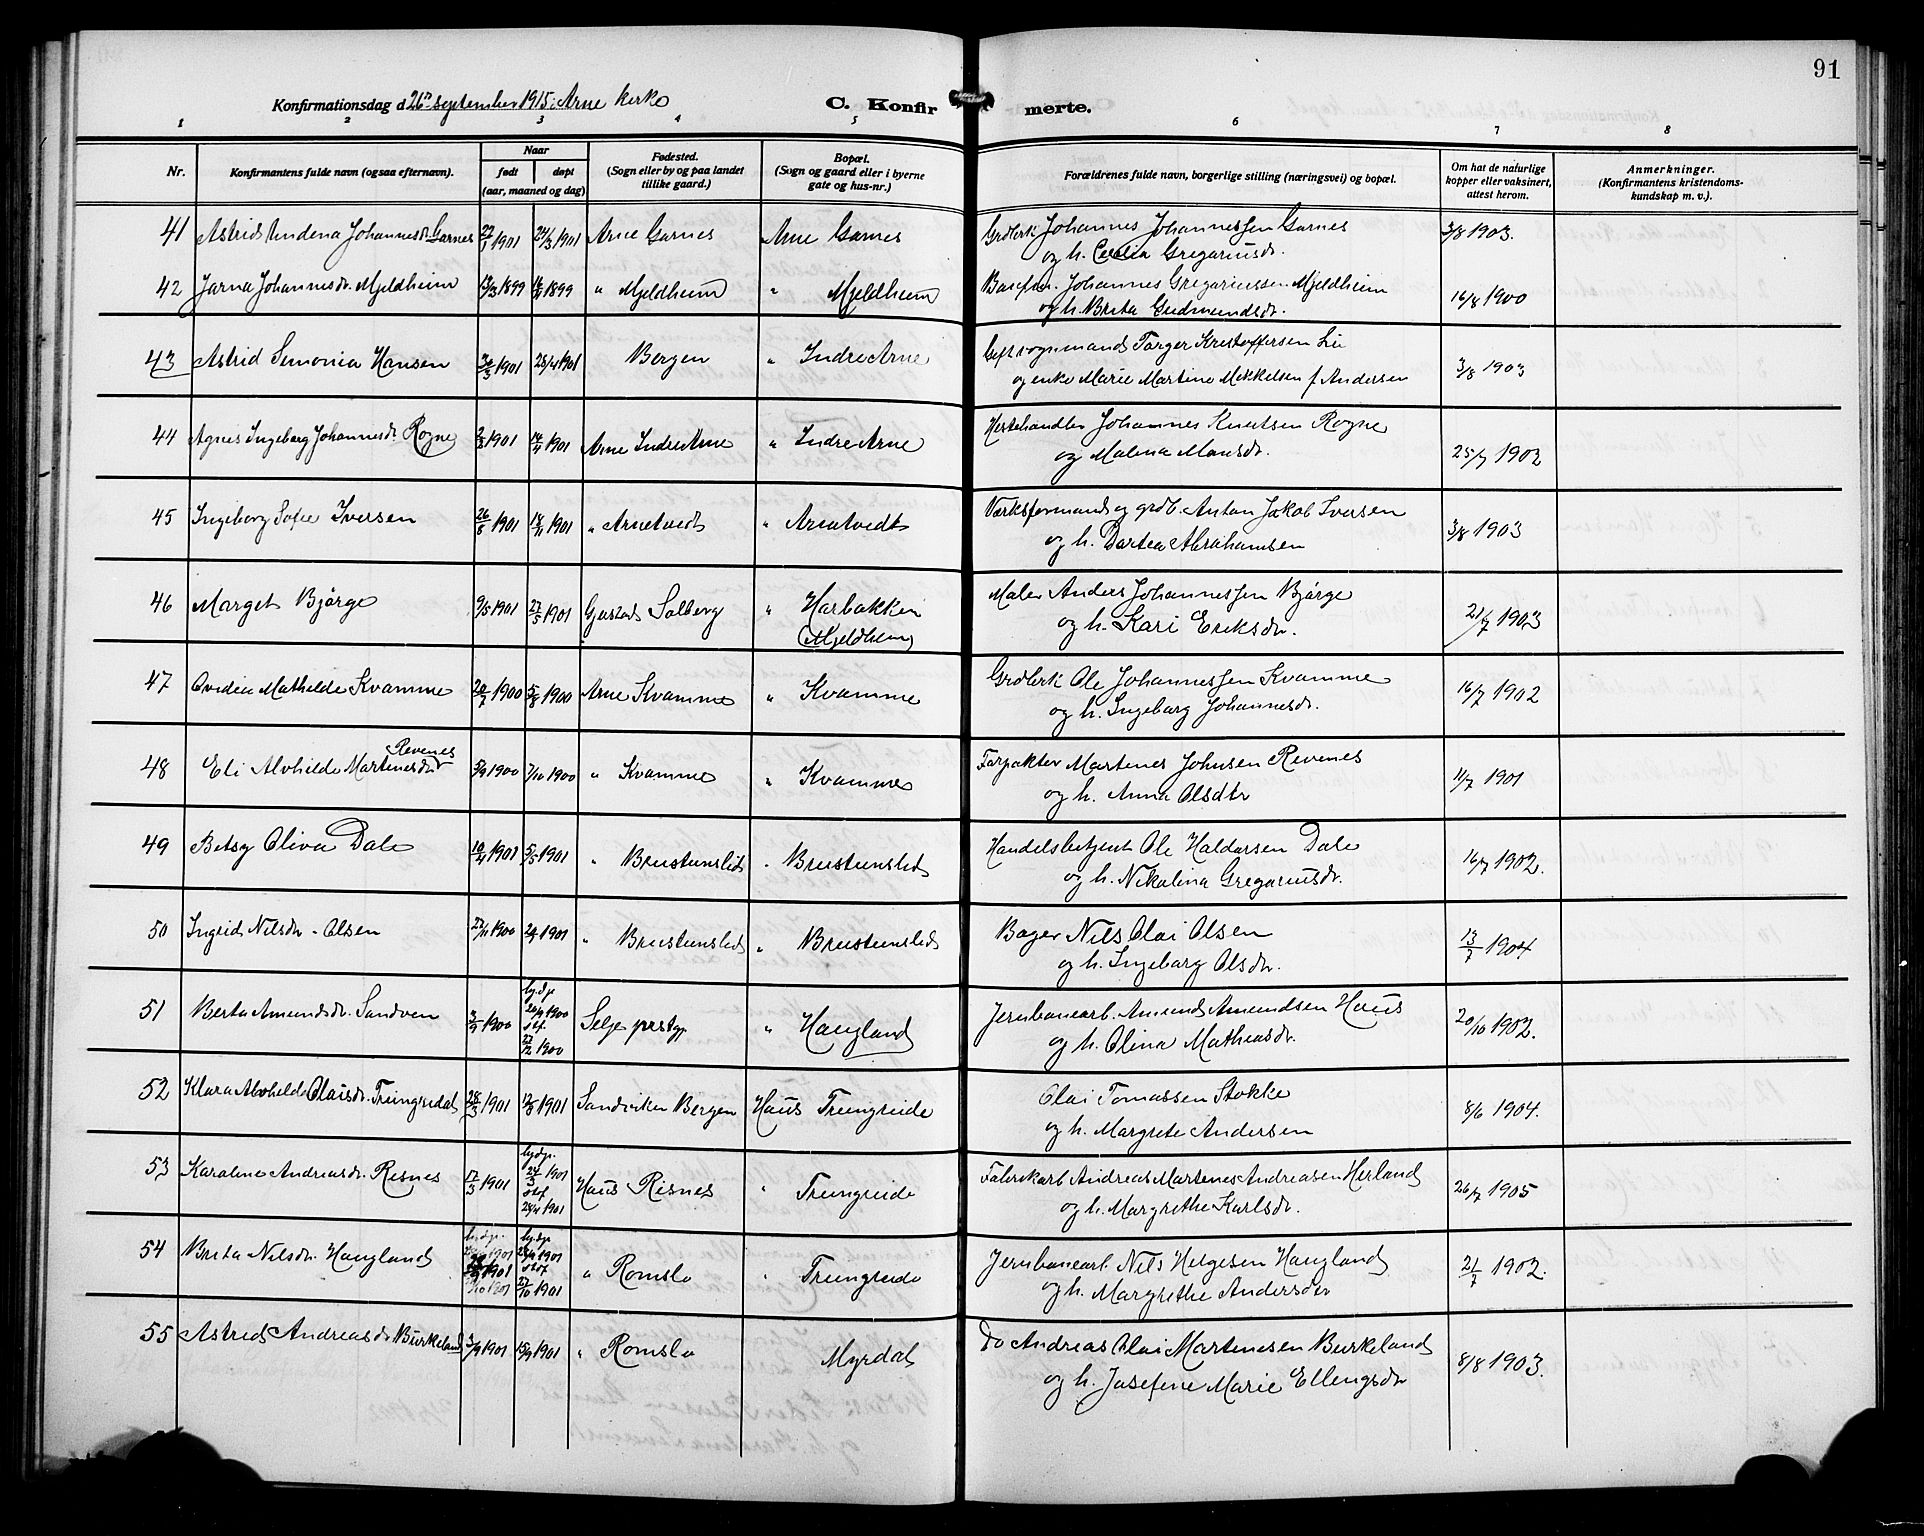 91
Konfirmationsdag d. 26de september 1915 i Arne kirke
C. Konfirmerte.
1 2 3 4 5 6 7 8
Nr. Konfirmantens fulde navn (ogsaa efternavn). Naar født døpt (aar, maaned og dag) Fødested. (Sogn eller by og paa landet tillike gaard.) Bopæl. (Sogn og gaard eller i byerne gate og hus-nr.) Forældrenes fulde navn, borgerlige stilling (næringsvei) og bopæl. Om hat de naturlige kopper eller vaksinert, attest herom. Anmerkninger. (Konfirmantens kristendomskundskap m. v.).
41 Astrid Andena Johannesdr. Garnes 1901 24/3 1901 Arne Garnes Arne Garnes Johannes Johannessen Garnes 3/8 1903.
og h. Cecilia Gregoriusdr.
42 Jarna Johannesdr. Mjeldheim 13/3 1899 1899 " Mjeldheim " Mjeldheim Johannes Gregoriussen Mjeldheim 16/8 1900
og h. Brita Gudmundsdr.
43 Astrid Simonia Hansen 1901 28/4 1901 Bergen " Indre Arne Torger Kristoffersen Lie 3/8 1903
og enke Marie Martine Mikkelsen f. Andersen
44 Agnes Ingeborg Johannesdr. Rogne 1901 14/4 1901 Arne Indre Arne " Indre Arne Hestehandler Johannes Knutsen Rogne 25/7 1902
og Malena Monsdr.
45 Ingeborg Sofie Iversen 26/8 1901 1901 " Arnetvedt " Arnatvedt Værksformand og grdb. Anton Jakob Iversen 3/8 1903
og h. Dortea Abrahamsen
46 Marget Bjørge 9/5 1901 27/5 1901 Gjestad Solberg " Harbakken Maler Anders Johannessen Bjørge 21/7 1903
(Mjeldheim) og h. Kari Eriksdr.
47 Ovidia Mathilde Kvamme 20/7 1900 5/8 1900 Arne Kvamme " Kvamme Ole Johannessen Kvamme 16/7 1902
og h. Ingeborg Johannesdr.
48 Eli Alvhilde Martinesdr. Revenes 5/9 1900 7/10 1900 " Kvamme " Kvamme Forpakter Martines Johnsen Revenes 11/7 1901
og h. Anna Olsdtr
49 Betsy Oliva Dale 10/4 1901 5/5 1901 " Brustunslid " Brustunslid Handelsbetjent Ole Haldorsen Dale 16/7 1902.
og h. Nikolina Gregoriusdr.
50 Ingrid Nilsdr. - Olsen 27/11 1900 1901 " Brustunslid " Brustunslid Bager Nils Olai Olsen 13/7 1904
og h. Ingeborg Olsdr.
51 Berta Amundsdr. Sandven 1900 hj.dp. 20/9 1900 stf. 23/12 1900 Selje prstgj. " Haugland Jernbanearb. Amund Amundsen Haus 20/10 1902.
og h. Olina Mathiasdr.
52 Klara Alvhilde Olaisdr. Trengreidal 28/3 1901 1901 Sandviken Bergen Haus Trengreide Olai Tomassen Stokke 8/6 1904.
og h. Margrete Andersen
53 Karoline Andreasdr. Risnes 17/3 1901 hj.dp. 24/3 1901 stf. 28/4 1901 Haus Risnes " Trengreide Fabrikarb Andreas Martines Andreasen Herland 26/7 1905
og h. Margrethe Karlsdr.
54 Brita Nilsdr. Haugland 1901 hj.dp. 1901 stf. 27/10 1901 " Romslo " Trengreide Jernbanearb. Nils Helgesen Haugland 21/7 1902.
og h. Margrethe Andersdtr
55 Astrid Andreasdr. Birkeland 3/9 1901 15/9 1901 " Romslo Myrdal Do Andreas Olai Martinesen Birkeland 8/8 1903.
og h. Josefine Marie Ellingsdr